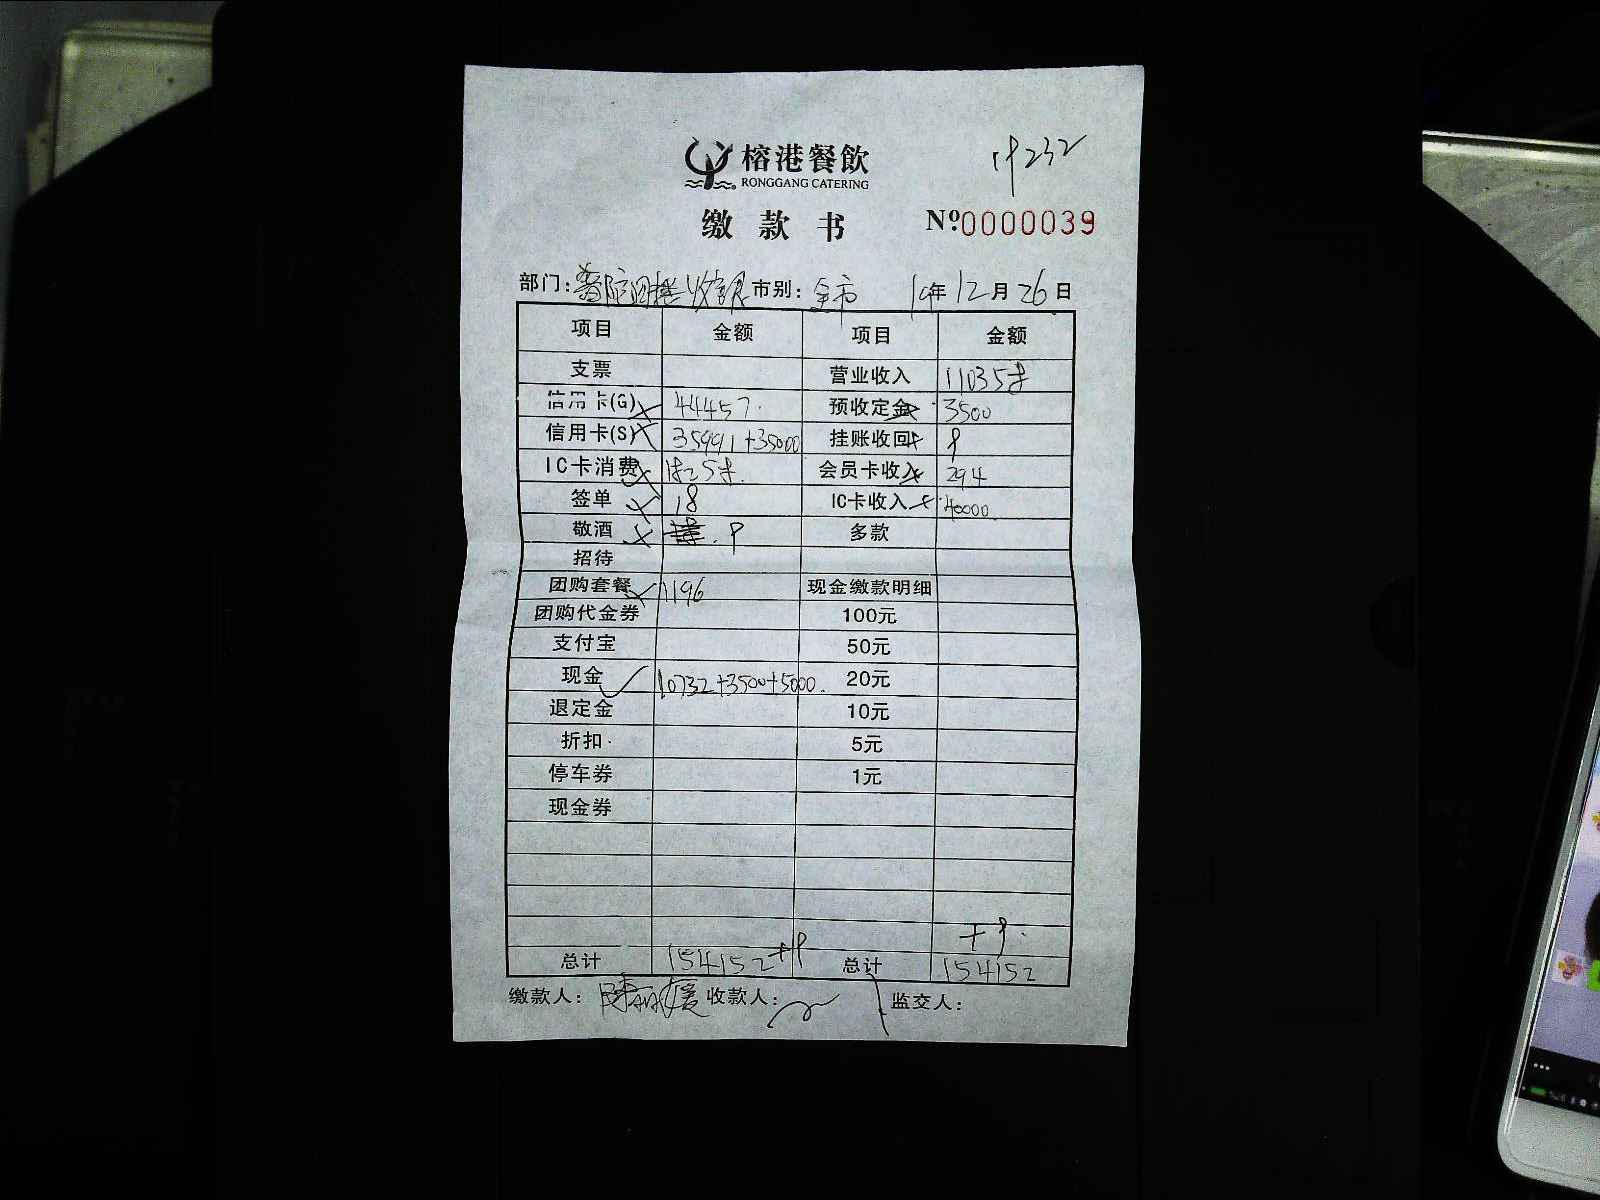 榕港餐飲
RONGGANG CATERING
缴款书
№:0000039
部门: 收 市别:全市 年12月26日
项目 金额 项目 金额
支票 营业收入
信用卡(G) 44457 预收定金 3500
信用卡(S) 35991+35000 挂账收回
IC卡消费 会员卡收入 294
签单 18 IC卡收入 40000
敬酒 多款
招待
团购套餐 1196 现金缴款明细
团购代金券 100元
支付宝 50元
现金 10732+3500+5000 20元
退定金 10元
折扣 5元
停车券 1元
现金券
总计 154152 总计 154152
缴款人: 收款人: 监交人: